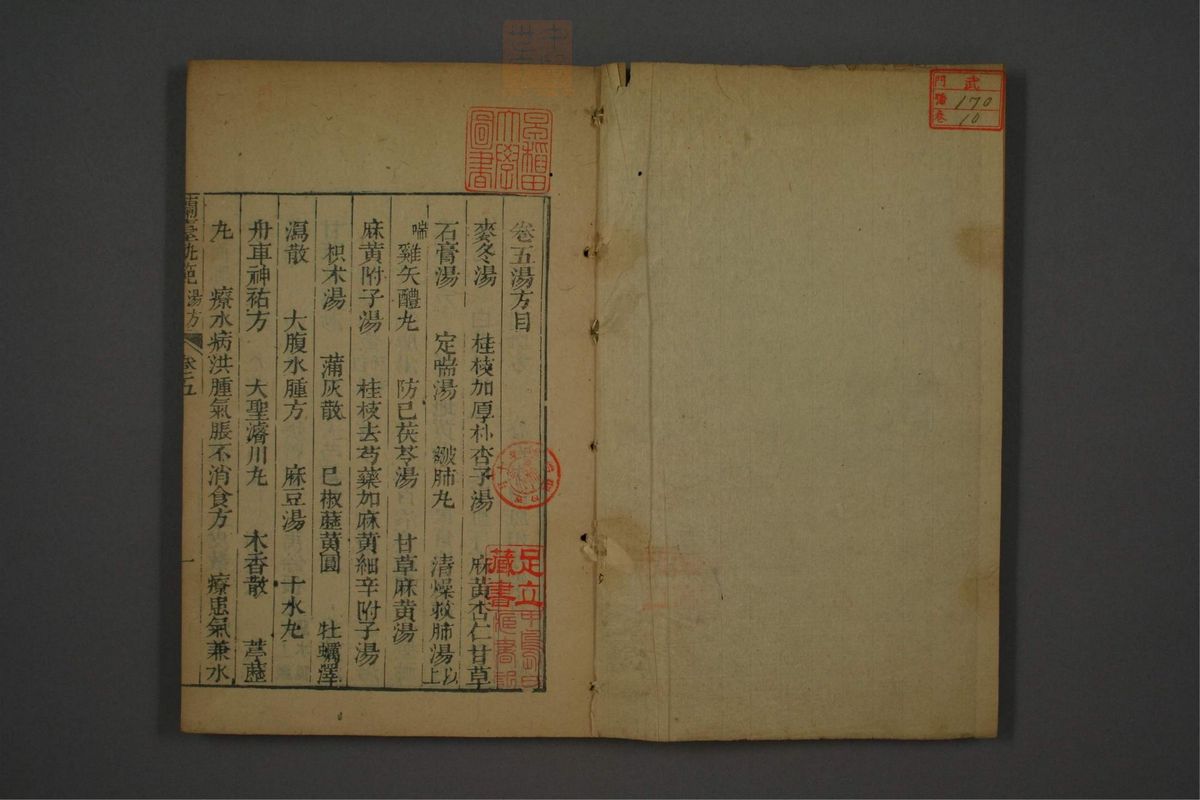 武
門 號 卷
170
10
早稲田大學圖書
卷五湯方目
麥冬湯 桂枝加厚朴杏子湯 麻黃杏仁甘草
石膏湯 定喘湯 皺肺丸 清燥救肺湯以上
喘 雞矢醴丸 防已茯苓湯 甘草麻黃湯
麻黃附子湯 桂枝去芍藥加麻黃細辛附子湯
枳朮湯 蒲灰散 已椒藶黃圓 牡蠣澤
瀉散 大腹水腫方 麻豆湯 十水丸
舟車神祐方 大聖濬川丸 木香散 葶藶
丸 療水病洪腫氣脹不消食方 療患氣兼水
蘭臺軌範 湯方 卷五 一
足立藏書